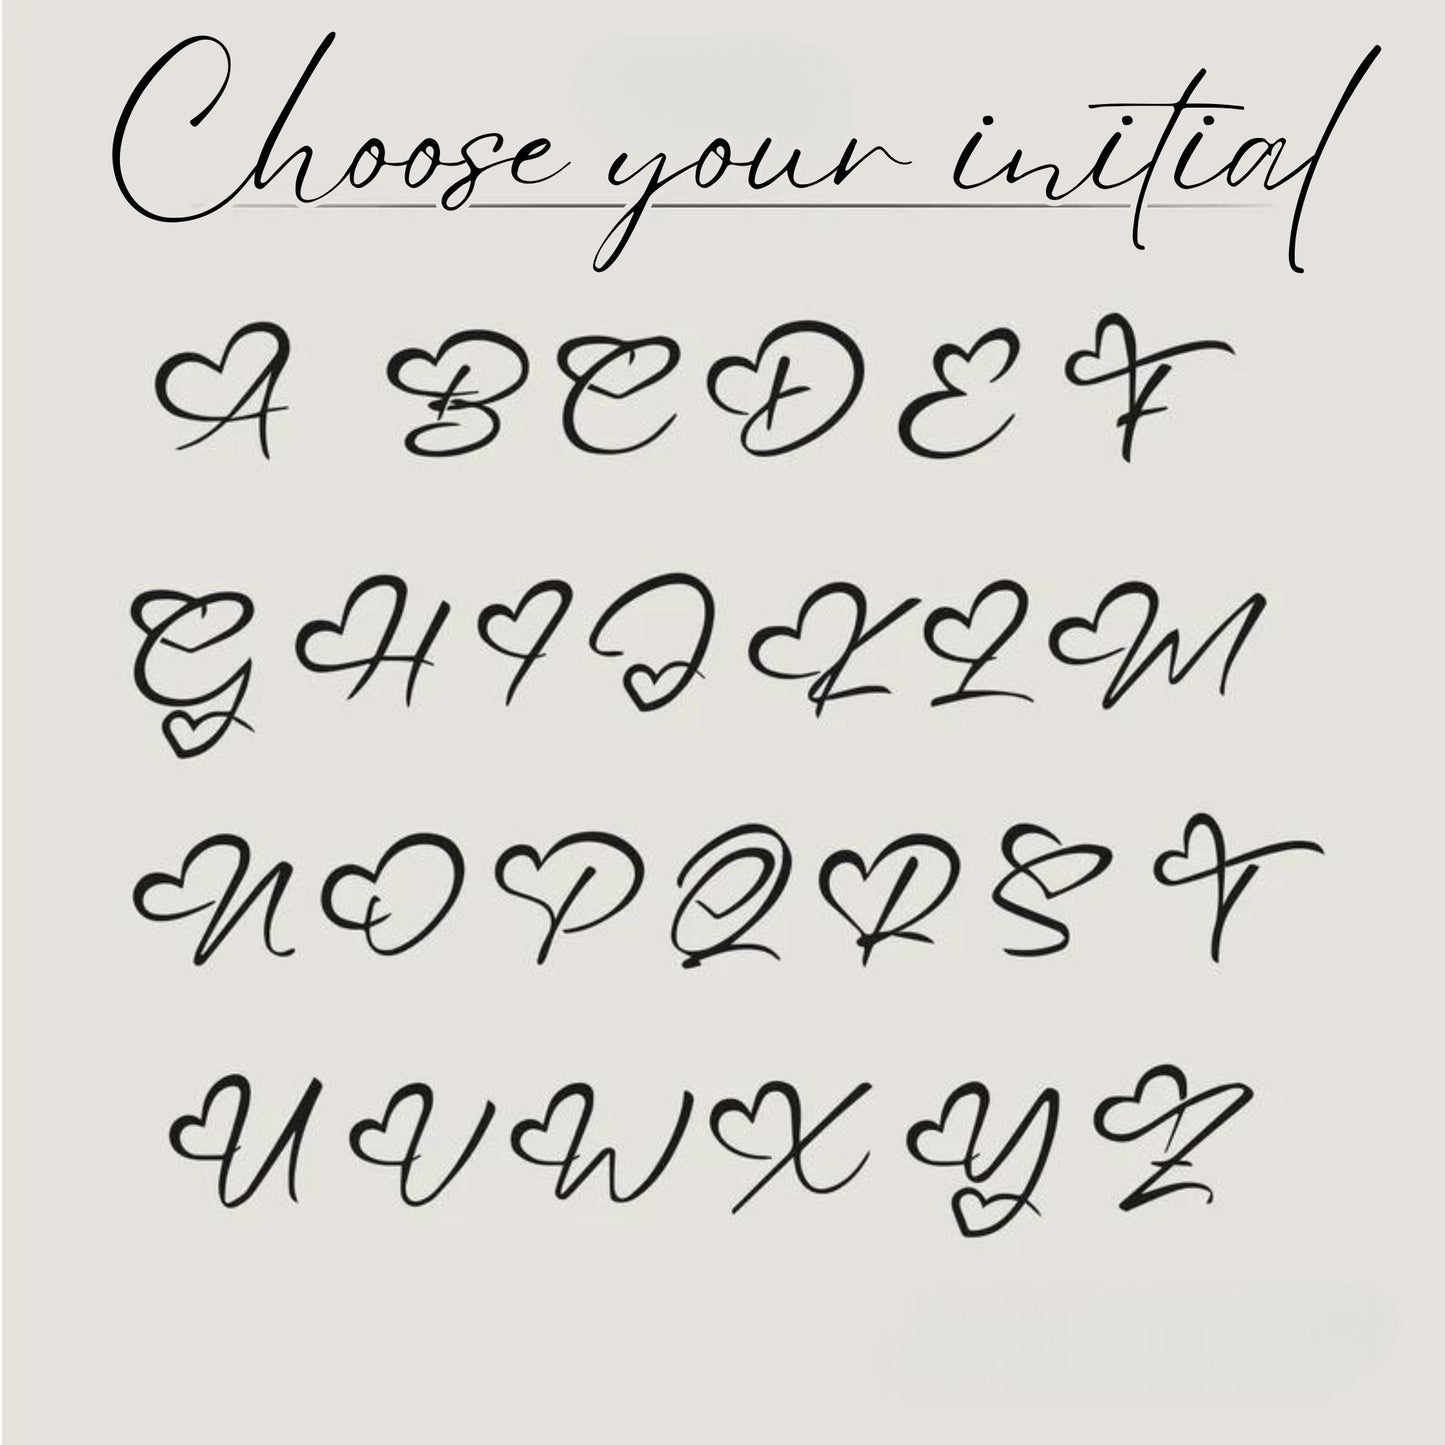 Choose your initial
A B C D E F
G H I J K L M
N O P Q R S T
U V W X Y Z